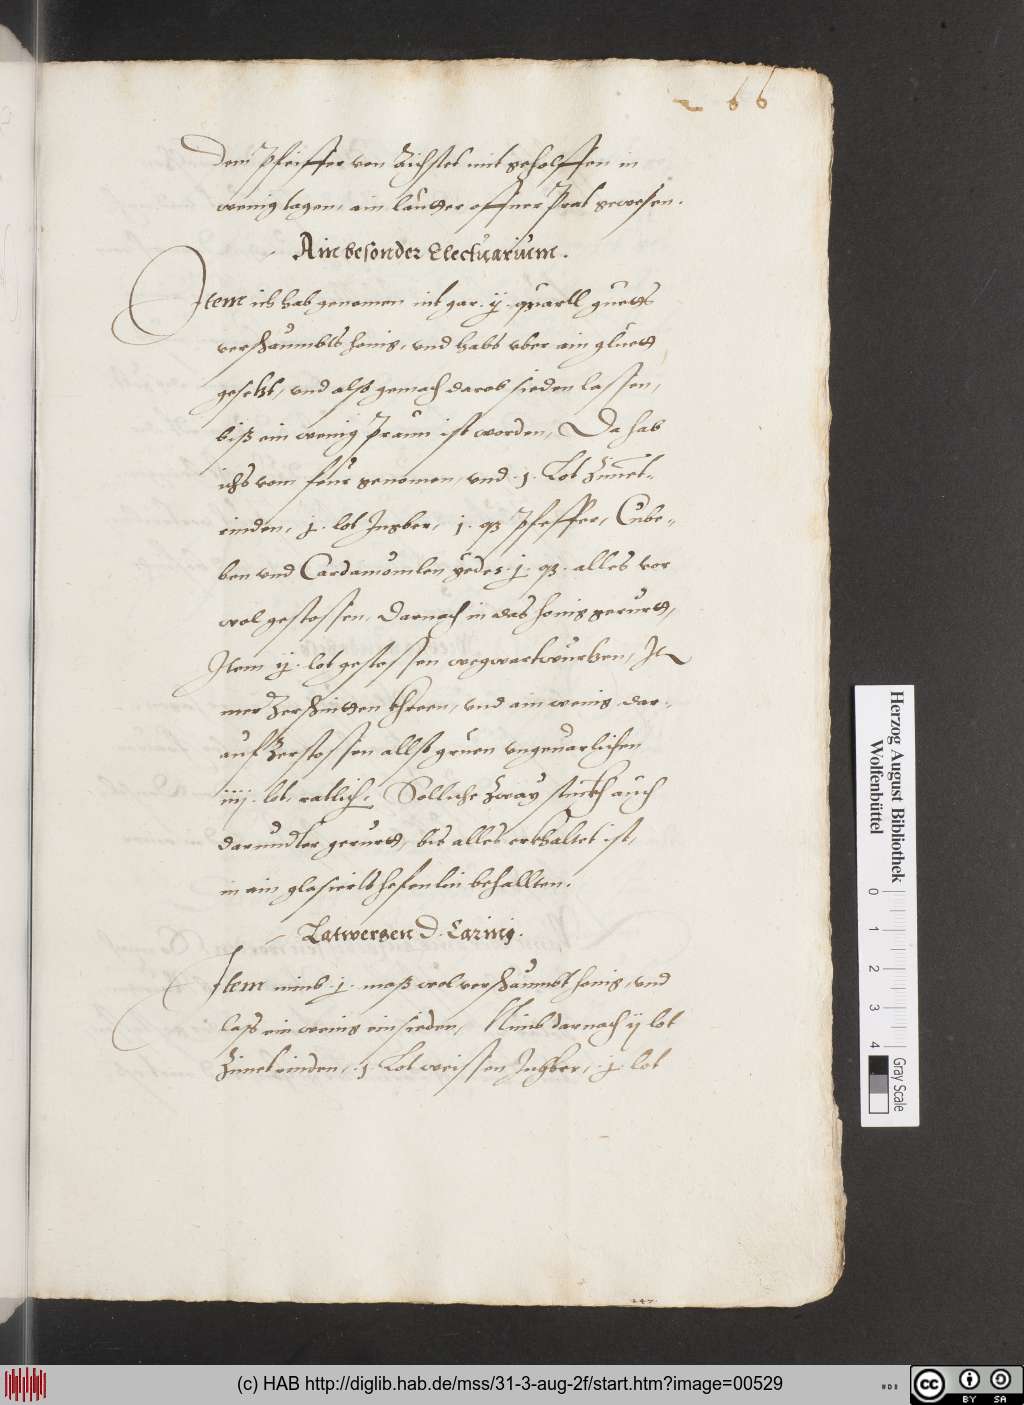 266
Dem Pfeiffer von Aichstet mit geholffen in
wenig tagen, ain lautter offner Prat gewesen.
Ain besonder Electuarium.
Item ich hab genomen nit gar ij quartl guetts
verschaumbts honig, und habs uber ain gluett
gesetzt, und also gemach darob sieden lassen,
biß ein wenig Praun ist worden, Da hab
ichs vom feur genomen, und .j. Lot Zimet-
rinden, j. lot Ingber, j. q3 Pfeffer, Cube-
ben und Cardamomlen yedes .j. q3. alles vor
wol gestossen, Darnach in das honig gerurtt,
Item ij. lot gestossen wegwartwurtzen, It
mer Zerschnitten khreen, und ain wenig dar-
auf Zerstossen allso gruen ungevarlichen
iiij. lot, Solliche Zway stuckh auch
darundter gerurtt, bis alles erkhaltet ist,
in ain glasierts hefenlin behallten.
Latwergen D.
Item nimb .j. maß wol verschaumbt honig, und
lass ein wenig einsieden, Nimb darnach ij lot
Zimetrinden, .j. Lot weissen Ingber, .j. lot
247.
Herzog August Bibliothek
Wolfenbüttel
0 1 2 3 4
Gray Scale
(c) HAB http://diglib.hab.de/mss/31-3-aug-2f/start.htm?image=00529
cc BY SA